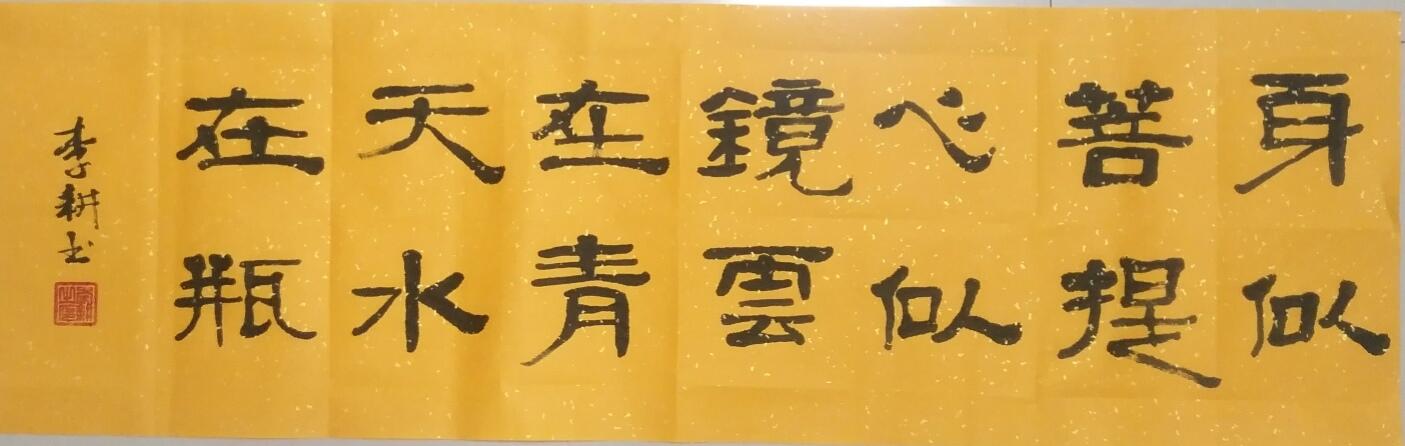 身似
菩提
心似
鏡雲
在青
天水
在瓶
李耕书